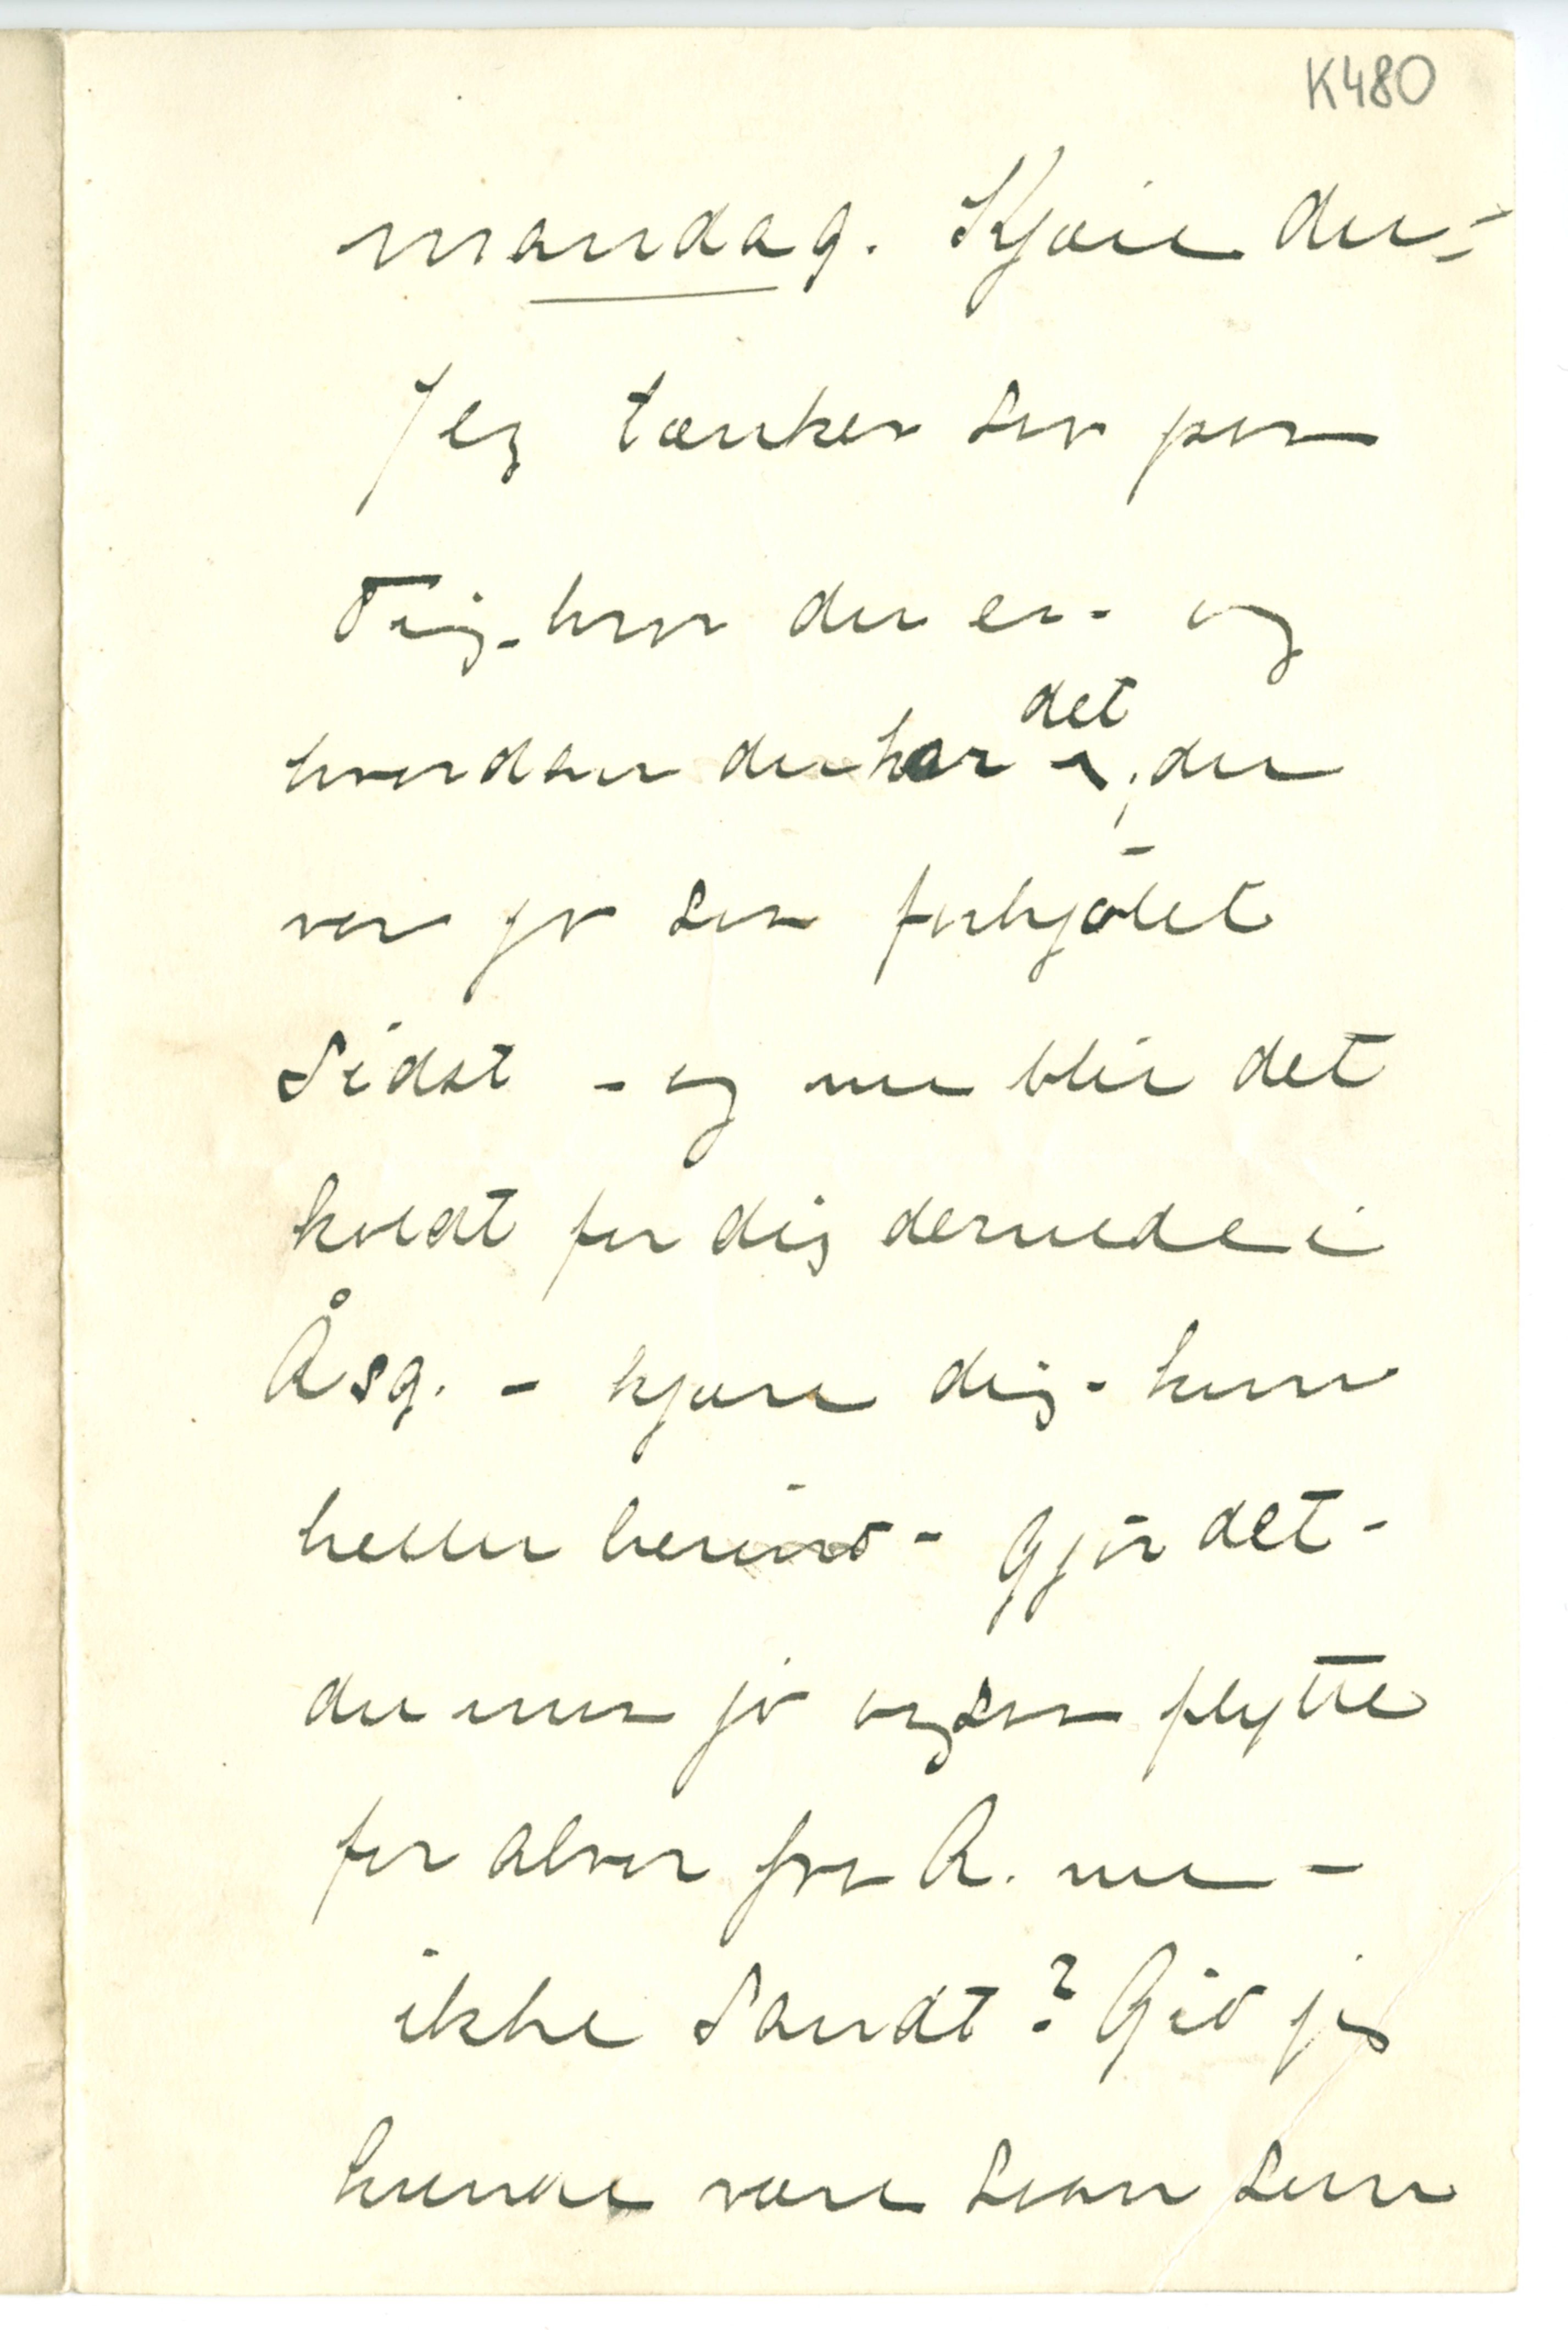 K480
mandag. Kjære du –
Jeg tænker saa paa
Dig – hvor du er – og
hvordan du har det, du
var jo saa forkjølet
sidst – og nu blir det
koldt for dig dernede i
Åsg. – kjære dig – kom
heller herind – Gjør det –
du maa jo ogsaa flytte
for alvor fra Å. nu –
ikke sandt? Gid jeg
kunde være saan som